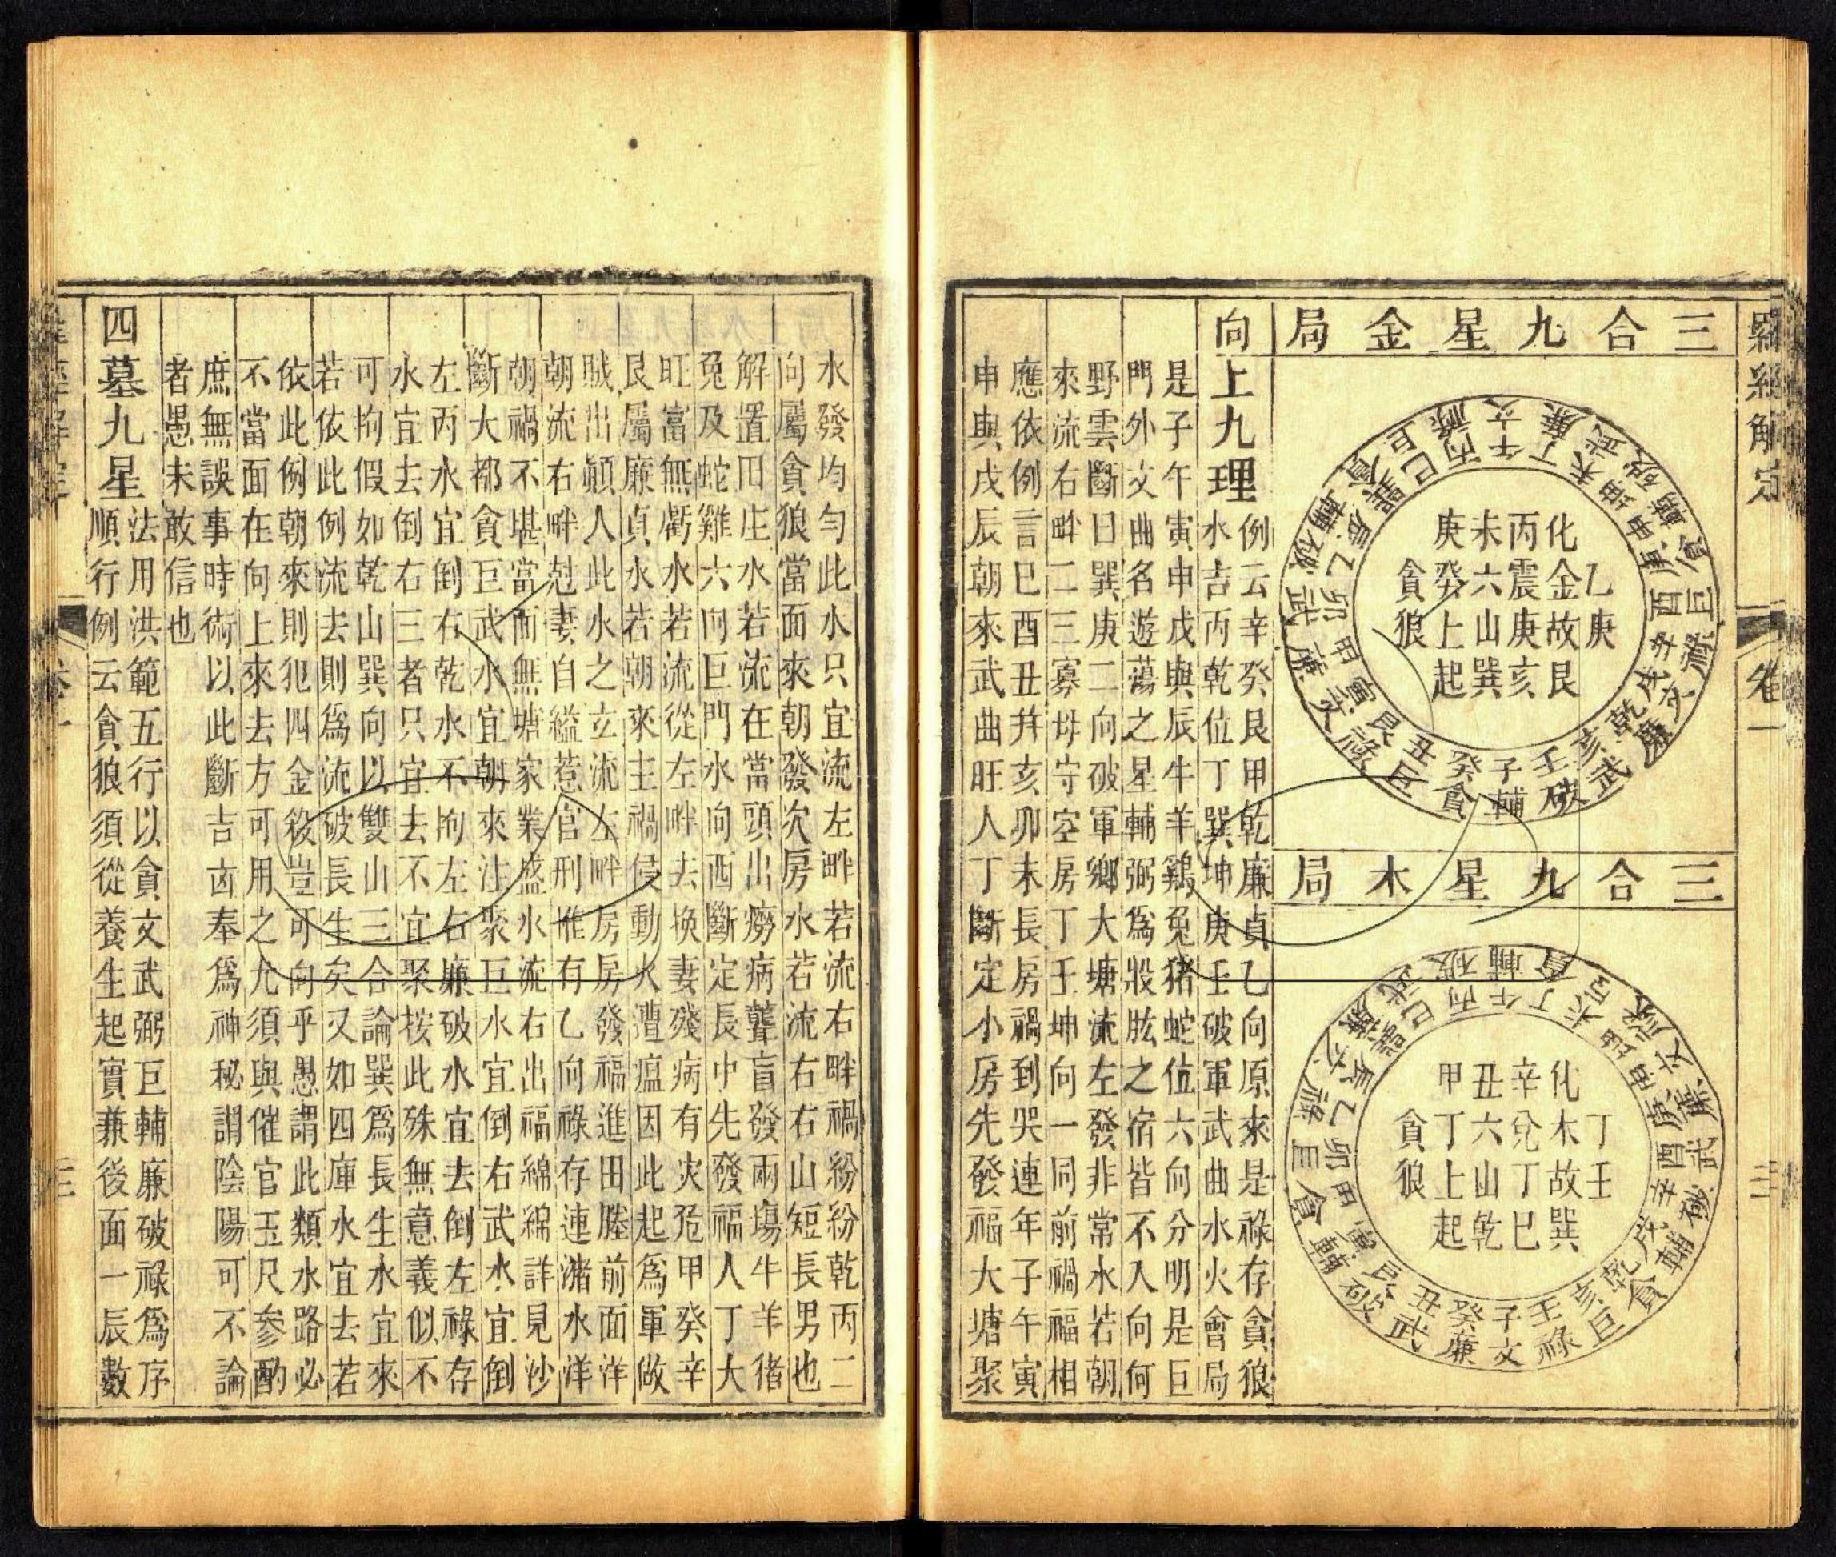 羅經解定
卷一
三合九星金局
乙庚
化金故艮
丙震庚亥
未六山巽
庚癸上起
貪狼
子癸丑艮寅甲卯乙辰巽巳丙午丁未坤申庚酉辛戌乾亥壬
輔貪巨祿文廉武破輔貪巨祿文廉武破輔貪巨祿文廉武破
三合九星木局
丁壬
化木故巽
辛兌丁巳
丑六山乾
甲丁上起
貪狼
子癸丑艮寅甲卯乙辰巽巳丙午丁未坤申庚酉辛戌乾亥壬
文廉武破輔貪巨祿文廉武破輔貪巨祿文廉武破輔貪巨祿
向上九理
例云辛癸艮甲乾廉貞乙向原來是祿存貪狼
水吉丙乾位丁巽坤庚壬破軍武曲水火會局
是子午寅申戌與辰牛羊鷄兔猪蛇位六向分明是巨
門外文曲名遊蕩之星輔弼為殺肱之宿皆不入向何
野雲斷曰巽庚二向破軍鄉大塘流左發非常水若朝
來流右畔二三寡母守空房丁壬坤向一同前禍福相
應依例言巳酉丑并亥卯未長房禍到哭連年子午寅
申與戌辰朝來武曲旺人丁斷定小房先發福大塘聚
水發均勻此水只宜流左畔若流右畔禍紛紛乾丙二
向屬貪狼當面來朝發次房水若流右右山短長男也
解置田庄水若流在當頭出癆病聾盲發兩塲牛羊猪
兔及蛇雞六向巨門水向酉斷定長中先發福人丁大
旺富無虧水若流從左畔去換妻殘病有灾危甲癸辛
艮屬廉貞水若朝來主禍侵動火遭瘟因此起為軍做
賊出顛人此水之玄流左畔房房發福進田塍前面洋
朝流右畔尅妻自縊惹官刑惟有乙向祿存連瀦水洋
朝禍不堪當面無塘家業盛水流右出福綿綿詳見沙
斷大都貪巨武水宜朝來注聚巨水宜倒右武水宜倒
左丙水宜倒右乾水不拘左右廉破水宜去倒左祿存
水宜去倒右三者只宜去不宜聚按此殊無意義似不
可拘假如乾山巽向以雙山三合論巽為長生水宜來
若依此例流去則為流破長生矣又如四庫水宜去若
依此例朝來則犯四金殺豈可向乎愚謂此類水路必
不當面在向上來去方可用之尤須與催官玉尺參酌
庶無誤事時術以此斷吉凶奉為神秘謂陰陽可不論
者愚未敢信也
四墓九星
法用洪範五行以貪文武弼巨輔廉破祿為序
順行例云貪狼須從養生起實兼後面一辰數